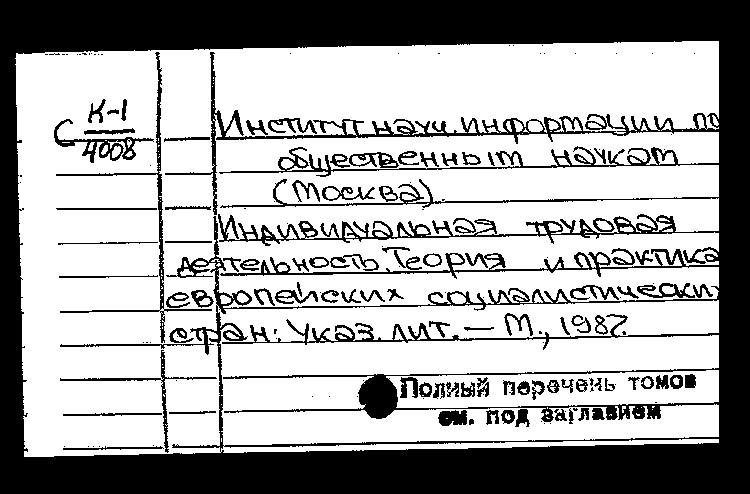 С К-1
4008
Институт науч. информации по
общественным наукам
(Москва)
Индивидуальная трудовая
деятельность. Теория и практика
европейских социалистически
стран: Указ. лит. — М., 1987.
Полный перечень томов
см. под заглавием